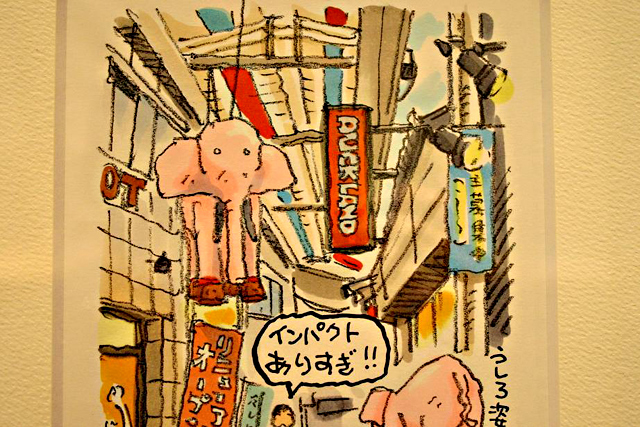 DUCKLAND
OT
インパクト
ありすぎ!!
リニューア
オープン
うしろ姿